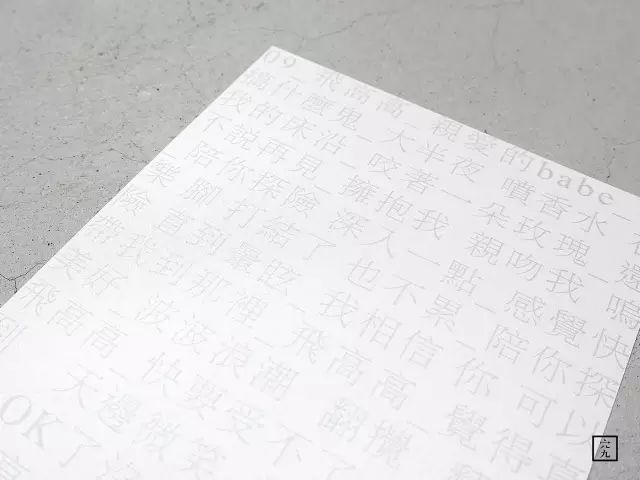 09_飛高高_親愛的babe_
搞什麼鬼_大半夜 噴香水_在
我的床沿_咬著一朵玫瑰_
不說再見_擁抱我 親吻我_嗚
陪你探險 深入一點_感覺快
樂 腳打結了 也不累_陪你探
險 直到暈眩_我相信 你可以
帶我到那裡_飛高高_覺得直
美好 波波浪潮 翻攪
飛高高_快要受不了
天邊微笑
OK了沒
六九